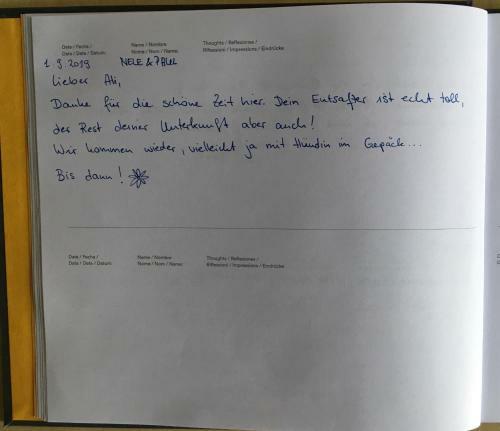 Date / Fecha / Name / Nombre Thoughts / Reflexiones /
Data / Date / Datum: Nome / Nom / Name: Riflessioni / Impressions / Eindrücke
1.9.2019 NELE & PAUL
Lieber Ali,
Danke für die schöne Zeit hier. Dein Entsafter ist echt toll,
der Rest deiner Unterkunft aber auch!
Wir kommen wieder, vielleicht ja mit Hündin im Gepäck...
Bis dann!
Date / Fecha / Name / Nombre Thoughts / Reflexiones /
Data / Date / Datum: Nome / Nom / Name: Riflessioni / Impressions / Eindrücke